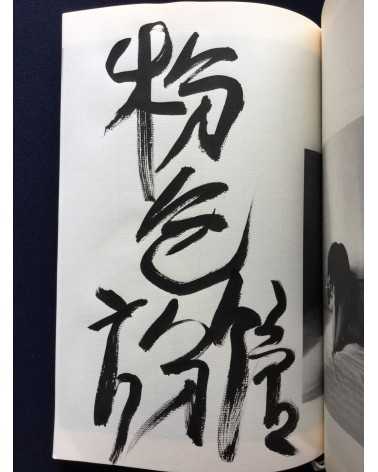 粉色
旅館